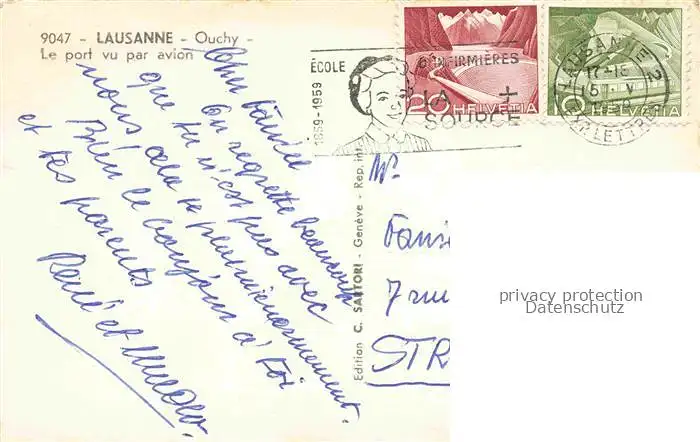 9047 - LAUSANNE - Ouchy -
Le port vu par avion
ÉCOLE
D'INFIRMIÈRES
1859-1959
LA
SOURCE
20 HELVETIA
10 HELVETIA
LAUSANNE 2
17-18
EXP. LETTRES
Edition C. SARTORI - Genève - Rep. int.
On regrette beaucoup
que tu n'est pas avec
nous, cela te plairait énormement.
Bien le bonjour à toi
et tes parents
René et
7 rue
STR
privacy protection
Datenschutz